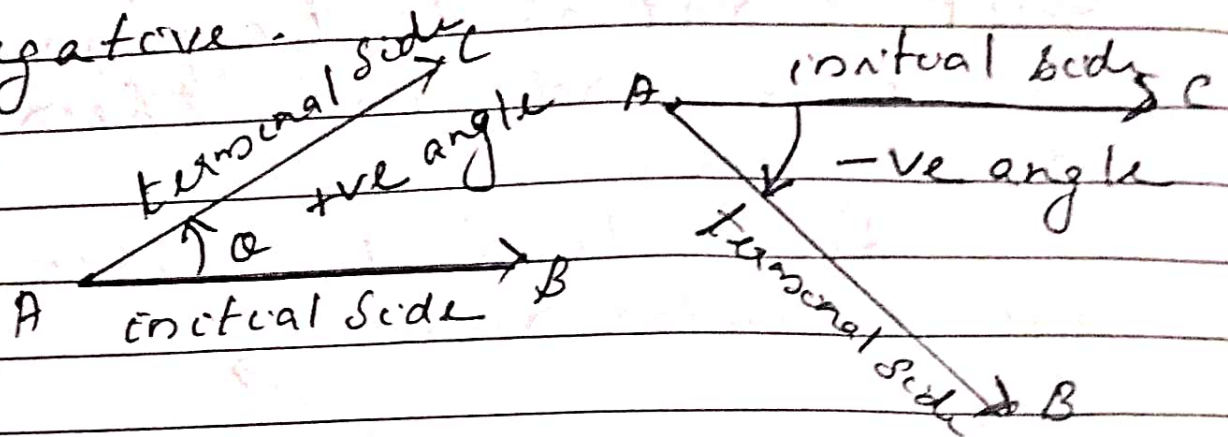 egative.
terminal side C
+ve angle
θ
A
B
initial side
A
initual body C
-ve angle
terminal side
B